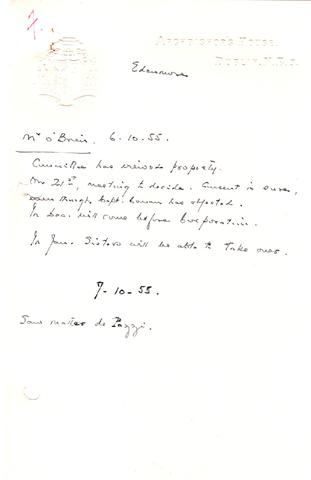 Archbishop's House,
Dublin, N.E.3.
Edenmore
Mr O'Brien, 6.10.55.
Committee has viewed property.
On 21st, meeting to decide. Consent is sure,
even though Capt. has objected.
In Dec. will come before Corporation.
In Jan. Sisters will be able to take over.
7-10-55.
Saw Mother de Pazzi.